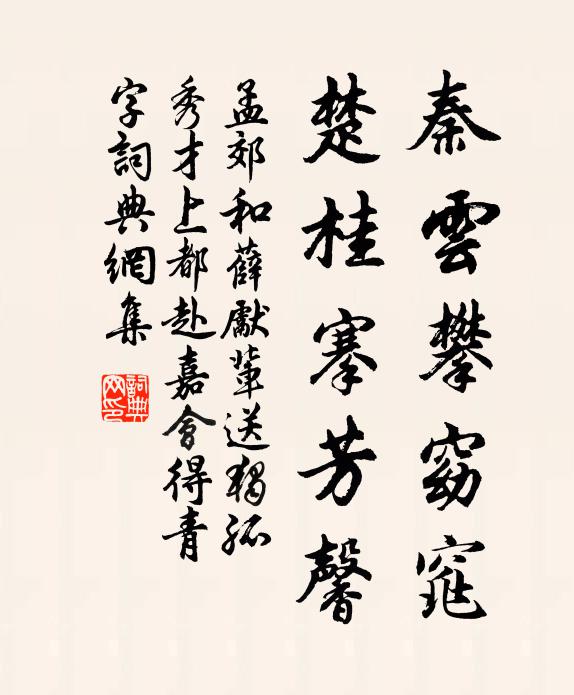 秦雲攀窈窕
楚桂搴芳馨
孟郊和薛獻輩送獨孤
秀才上都赴嘉會得青
字詞典網集
詞典
网印